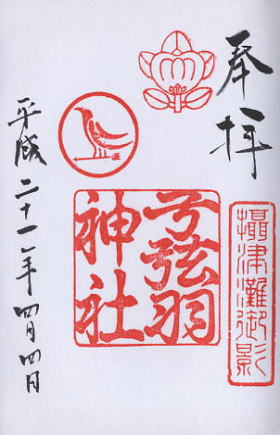 奉拝
攝津灘御影
弓弦羽
神社
平成二十一年四月四日